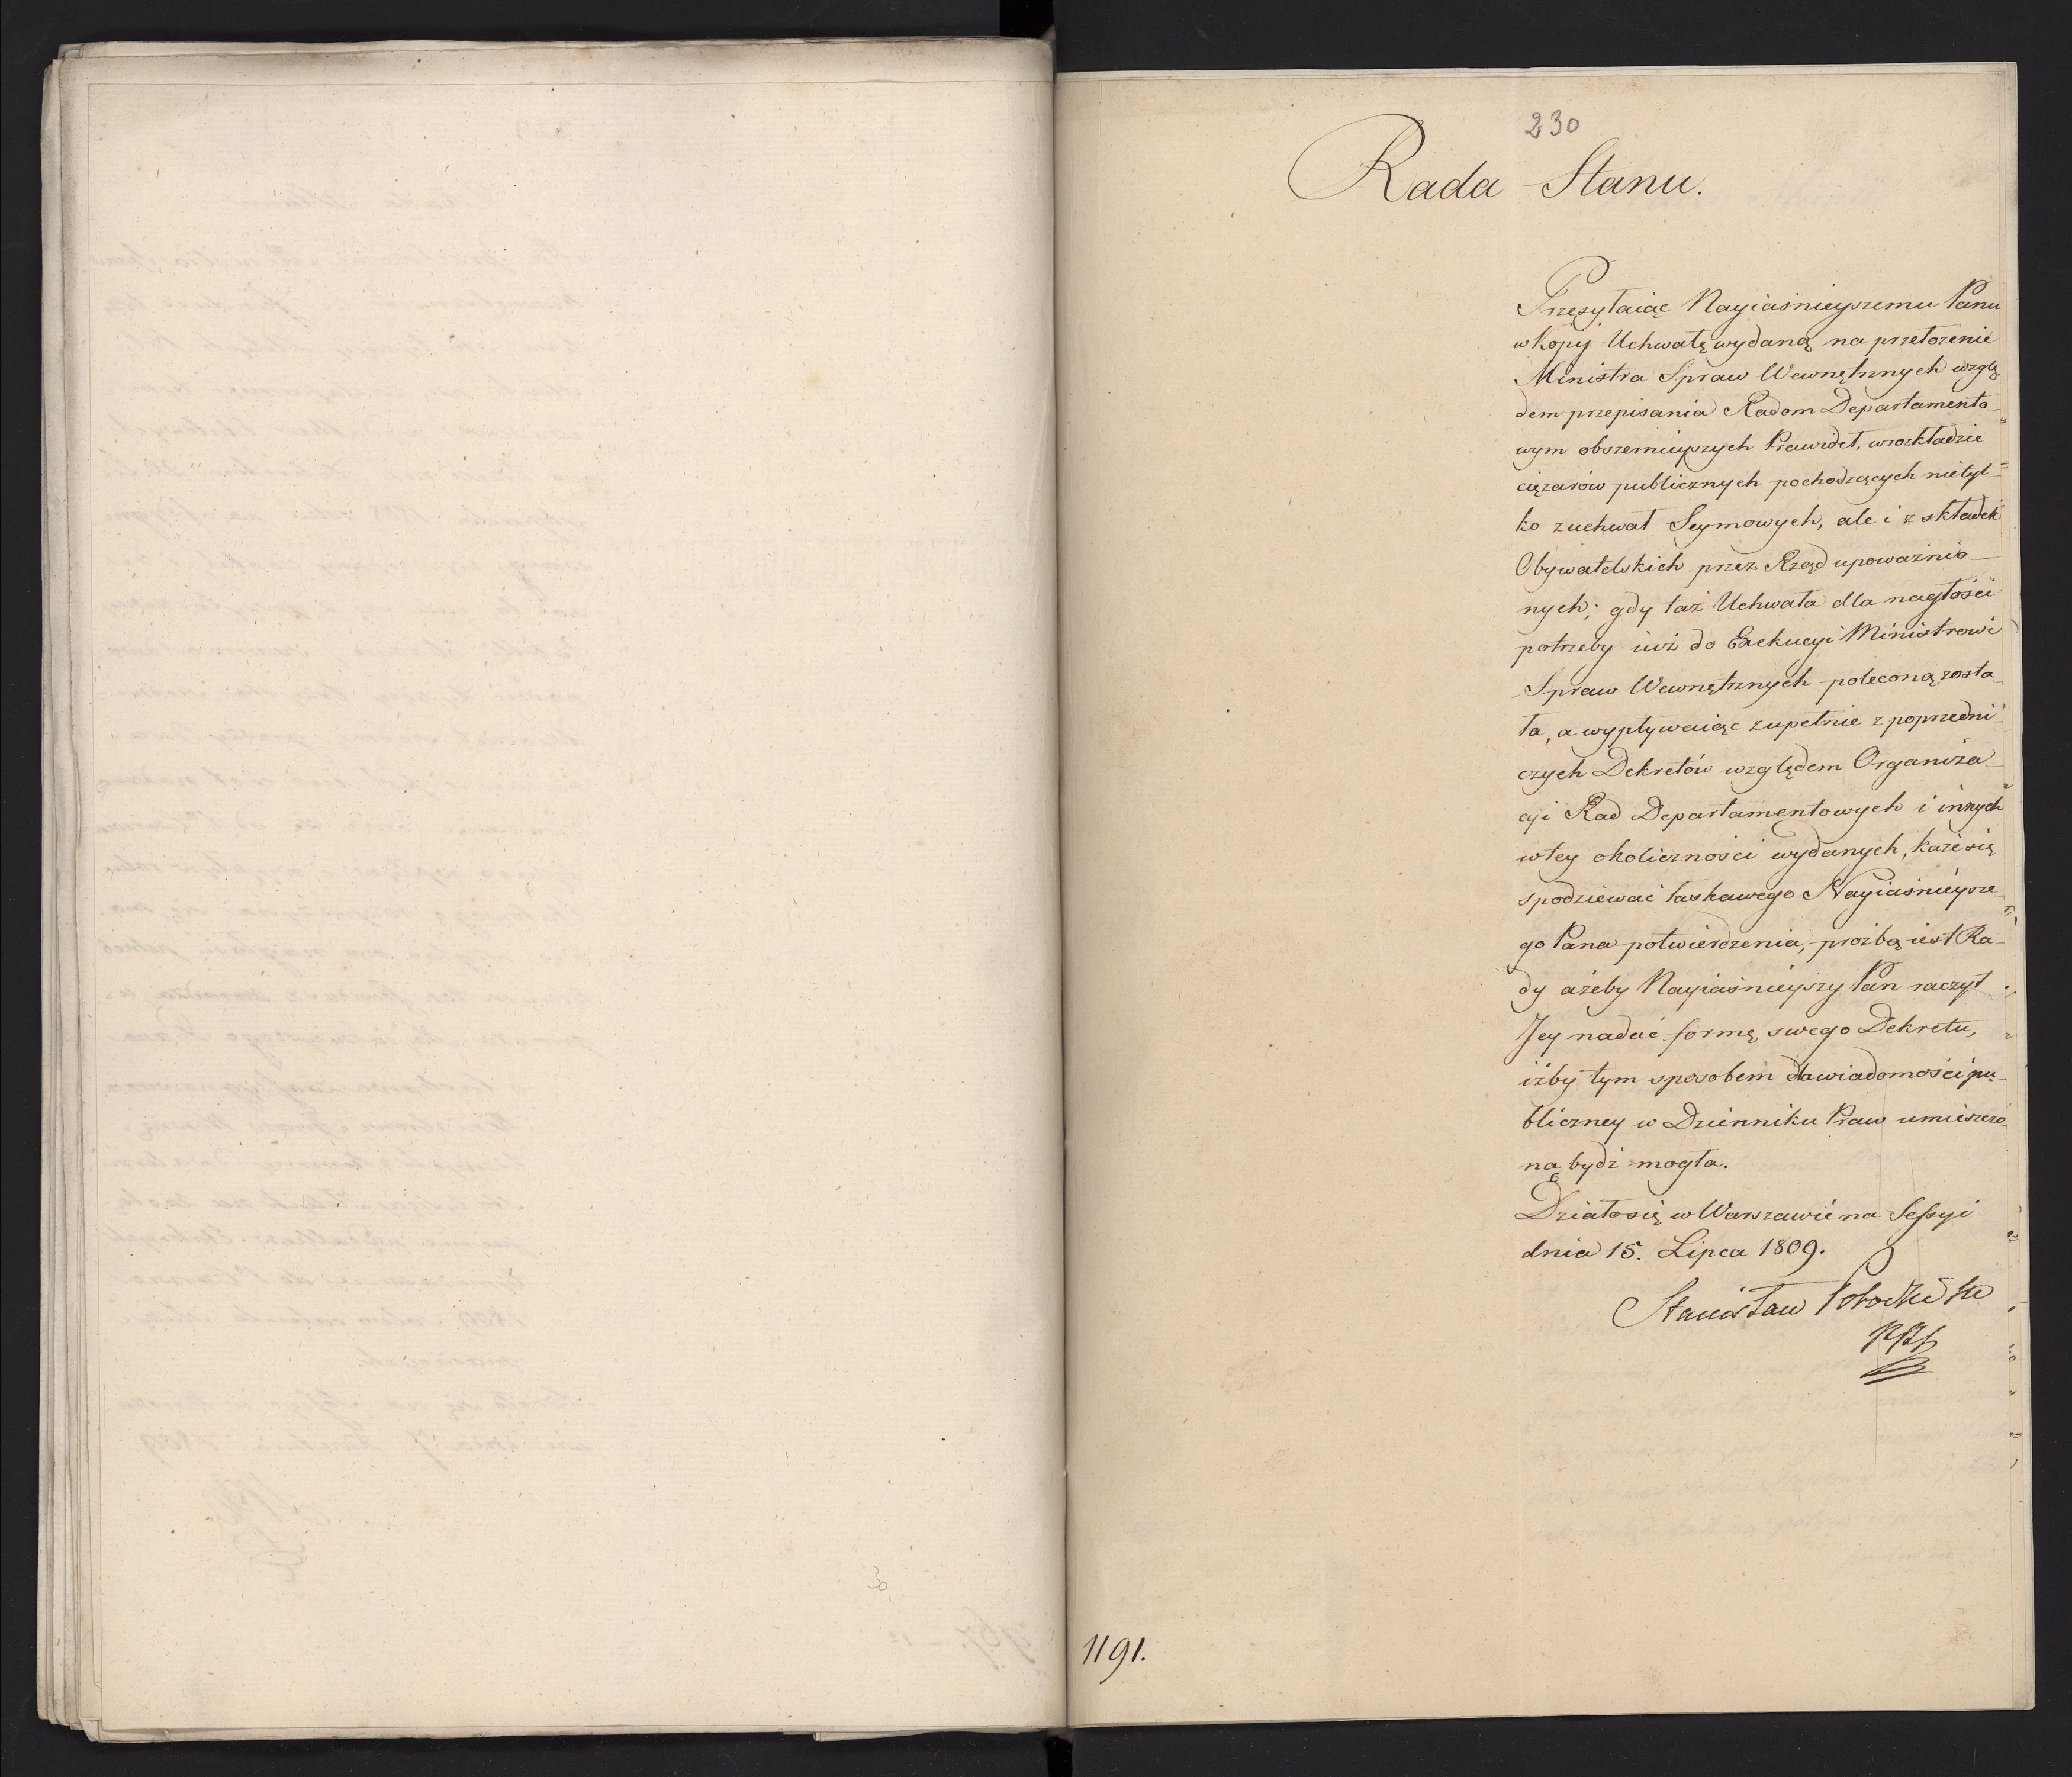 230
Rada Stanu.
Przesyłaiąc Nayiaśnieyszemu Panu
w Kopij Uchwałę wydaną na przełożenie
Ministra Spraw Wewnętrznych wzglę
dem przepisania Radom Departamento-
wym obszernieyszych Prawideł, w rozkładzie
ciężarów publicznych pochodzących nietyl=
ko z uchwał Seymowych, ale i z składek
Obywatelskich przez Rząd upoważnio-
nych; gdy taż Uchwała dla nagłości
potrzeby iuż do Exekucyi Ministrowi
Spraw Wewnętrznych poleconą zosta-
ła, a wypływaiąc zupełnie z poprzedni-
czych Dekretów względem Organiza-
cyi Rad Departamentowych i innych
w tey okoliczności wydanych, każe się
spodziewać łaskawego Nayiaśnieysze-
go Pana potwierdzenia, proźbą iest Ra-
dy ażeby Nayiaśnieyszy Pan raczył
Jey nadać formę swego Dekretu,
iżby tym sposobem do wiadomości pu-
bliczney w Dzienniku Praw umieszczo-
ną bydź mogła.
Działo się w Warszawie na Sessyi
dnia 15. Lipca 1809.
Stanisław Potocki
1191.